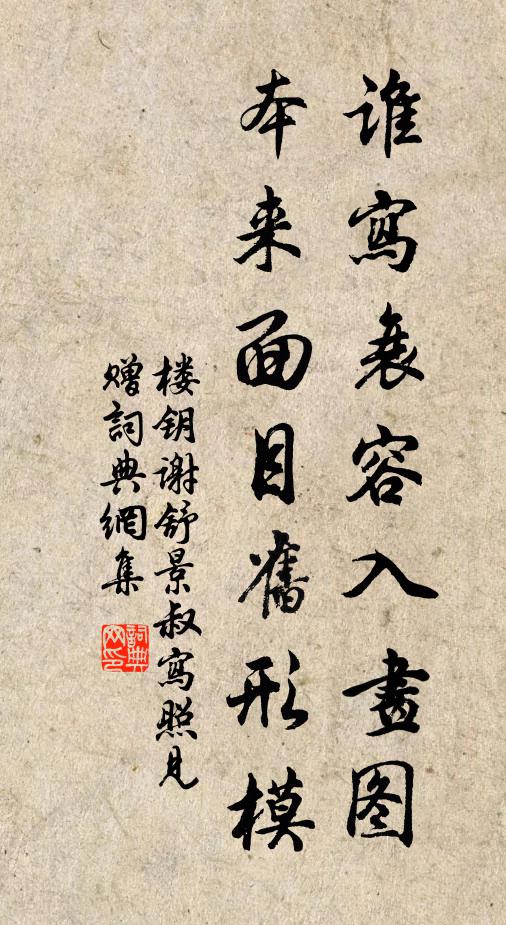 谁寫衰容入畫图
本来面目舊形模
楼钥谢舒景叔寫照見
赠詞典網集
詞典网印